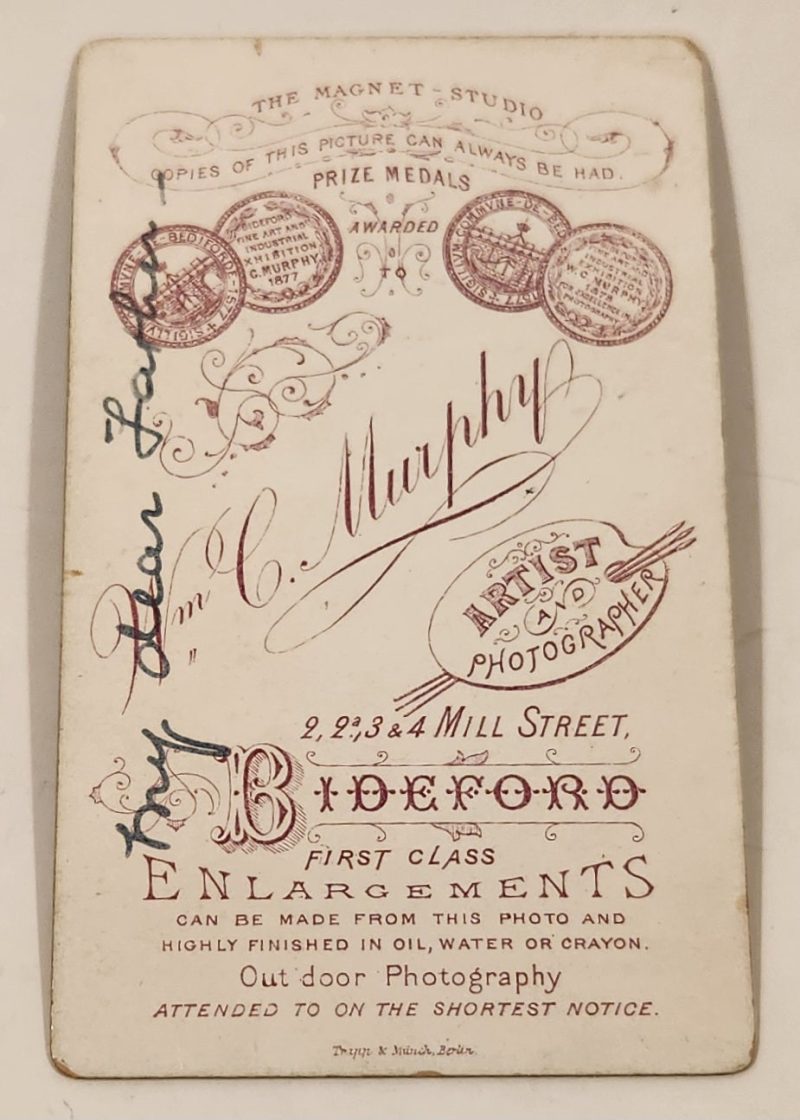 THE MAGNET-STUDIO
COPIES OF THIS PICTURE CAN ALWAYS BE HAD.
PRIZE MEDALS
AWARDED
TO
BIDEFORD
FINE ART AND
INDUSTRIAL
EXHIBITION
C. MURPHY
1877
MVNE-DE-BEDIFORDE-1577+SIGILLVM
SIGILLVM COMMVNE-DE-BED 1577
FINE ART AND
INDUSTRIAL
EXHIBITION
W. C. MURPHY
1878
FOR EXCELLENCE IN
PHOTOGRAPHY
Wm C. Murphy
ARTIST
AND
PHOTOGRAPHER
2, 2ª, 3 & 4 MILL STREET,
BIDEFORD
FIRST CLASS
ENLARGEMENTS
CAN BE MADE FROM THIS PHOTO AND
HIGHLY FINISHED IN OIL, WATER OR CRAYON.
Out door Photography
ATTENDED TO ON THE SHORTEST NOTICE.
Trapp & Münch, Berlin.
My dear Father-